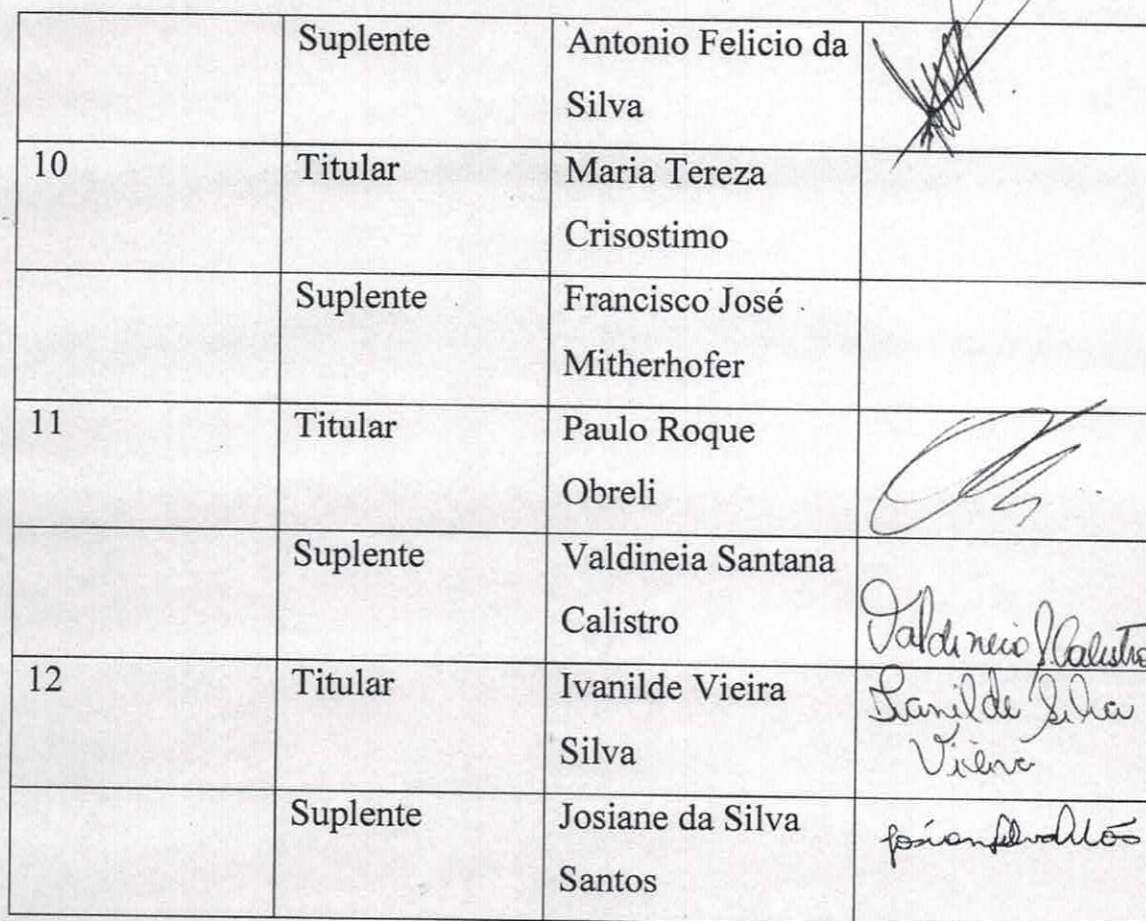 Suplente Antonio Felicio da
Silva
10 Titular Maria Tereza
Crisostimo
Suplente Francisco José
Mitherhofer
11 Titular Paulo Roque
Obreli
Suplente Valdineia Santana
Calistro
Valdineia S. Calistro
12 Titular Ivanilde Vieira
Silva
Ivanilde Silva
Vieira
Suplente Josiane da Silva
Santos